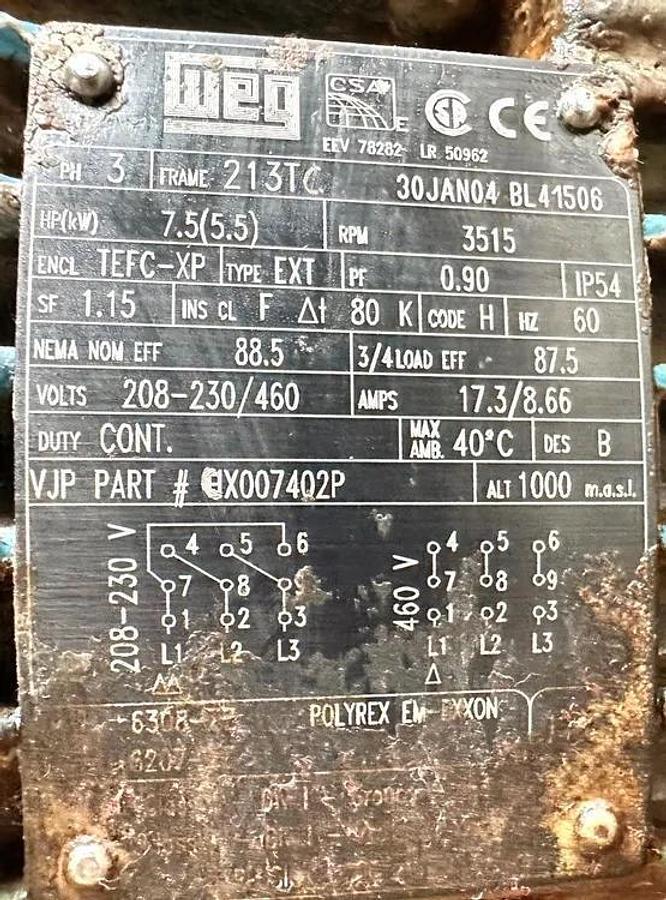 WEG
CSA
E
CE
EEV 78282 LR 50962
PH 3 FRAME 213TC 30JAN04 BL41506
HP(kW) 7.5(5.5) RPM 3515
ENCL TEFC-XP TYPE EXT PF 0.90 IP54
SF 1.15 INS CL F Δt 80 K CODE H HZ 60
NEMA NOM EFF 88.5 3/4 LOAD EFF 87.5
VOLTS 208-230/460 AMPS 17.3/8.66
DUTY CONT. MAX AMB. 40°C DES B
VJP PART # X007402P ALT 1000 m.a.s.l.
208-230 V
4 5 6
7 8
1 2 3
L1 L2 L3
ΔΔ
460 V
4 5 6
7 8 9
1 2 3
L1 L2 L3
Δ
6308 POLYREX EM-EXXON
6207